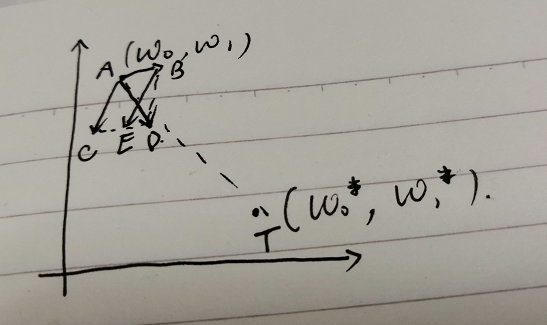 A (W₀, W₁)
B
C E D
(W₀*, W₁*).
T